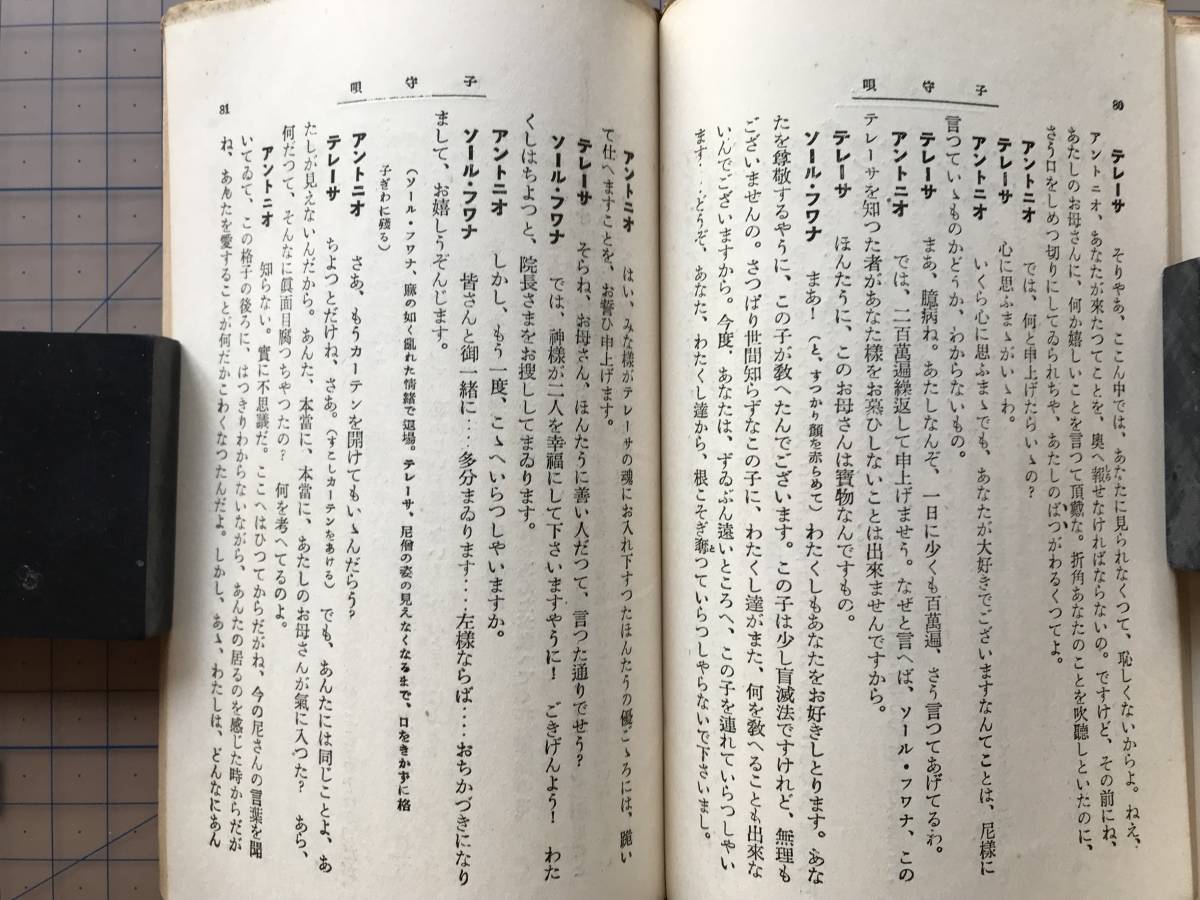 子守唄
80
テレーサ　そりやあ、ここん中では、あなたに見られなくつて、恥しくないからよ。ねえ、
アントニオ、あなたが来たつてことを、奥へ報せなければならないの。ですけど、その前にね、
あたしのお母さんに、何か嬉しいことを言つて頂戴な。折角あなたのことを吹聴しといたのに、
さう口をしめつ切りにしてゐられちや、あたしのばつがわるくつてよ。
アントニオ　では、何と申上げたらいゝの？
テレーサ　心に思ふまゝがいゝわ。
アントニオ　いくら心に思ふまゝでも、あなたが大好きでございますなんてことは、尼様に
言つていゝものかどうか、わからないもの。
テレーサ　まあ、臆病ね。あたしなんぞ、一日に少くも百萬遍、さう言つてあげてるわ。
アントニオ　では、二百萬遍繰返して申上げませう。なぜと言へば、ソール・フワナ、この
テレーサを知つた者があなた様をお慕ひしないことは出來ませんですから。
テレーサ　ほんたうに、このお母さんは寶物なんですもの。
ソール・フワナ　まあ！（と、すつかり顔を赤らめて）わたくしもあなたをお好きしとります。あな
たを尊敬するやうに、この子が敎へたんでございます。この子は少し盲滅法ですけれど、無理も
ございませんの。さつぱり世間知らずなこの子に、わたくし達がまた、何を敎へることも出來な
いんでございますから。今度、あなたは、ずゐぶん遠いところへ、この子を連れていらつしやい
ます…どうぞ、あなた、わたくし達から、根こそぎ奪つていらつしやらないで下さいまし。
子守唄
81
アントニオ　はい、みな様がテレーサの魂にお入れ下すつたほんたうの優ごゝろには、跪い
て仕へますことを、お誓ひ申上げます。
テレーサ　そらね、お母さん、ほんたうに善い人だつて、言つた通りでせう？
ソール・フワナ　では、神様が二人を幸福にして下さいますやうに！　ごきげんよう！　わた
くしはちよつと、院長さまをお捜ししてまゐります。
アントニオ　しかし、もう一度、こゝへいらつしやいますか。
ソール・フワナ　皆さんと御一緒に‥‥多分まゐります‥‥左様ならば‥‥おちかづきになり
まして、お嬉しうぞんじます。
（ソール・フワナ、麻の如く亂れた情緒で退場。テレーサ、尼僧の姿の見えなくなるまで、口をきかずに格
子ぎわに殘る）
アントニオ　さあ、もうカーテンを開けてもいゝんだらう？
テレーサ　ちよつとだけね、さあ。（すこしカーテンをあける）でも、あんたには同じことよ、あ
たしが見えないんだから。あんた、本當に、本當に、あたしのお母さんが氣に入つた？　あら、
何だつて、そんなに眞面目腐つちやつたの？　何を考へてるのよ。
アントニオ　知らない。實に不思議だ。ここへはひつてからだがね、今の尼さんの言葉を聞
いてゐて、この格子の後ろに、はつきりわからないながら、あんたの居るのを感じた時からだが
ね、あんたを愛することが何だかこわくなつたんだよ。しかし、あゝ、わたしは、どんなにあん